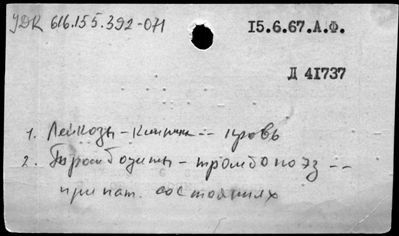 УДК 616.155.392-071
15.6.67.А.Ф.
Д 41737
1. Лейкозы - клиника -- кровь
2. Тромбоциты - тромбопоэз --
при пат. состояниях